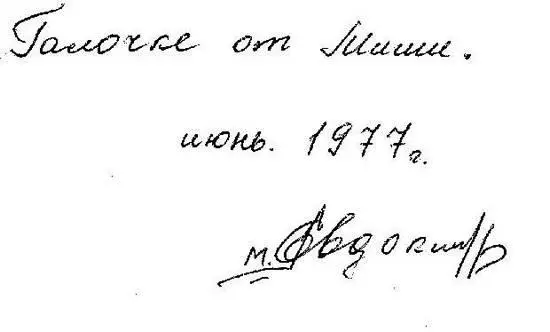 Галочке от Миши.
июнь. 1977г.
м. Евдоким